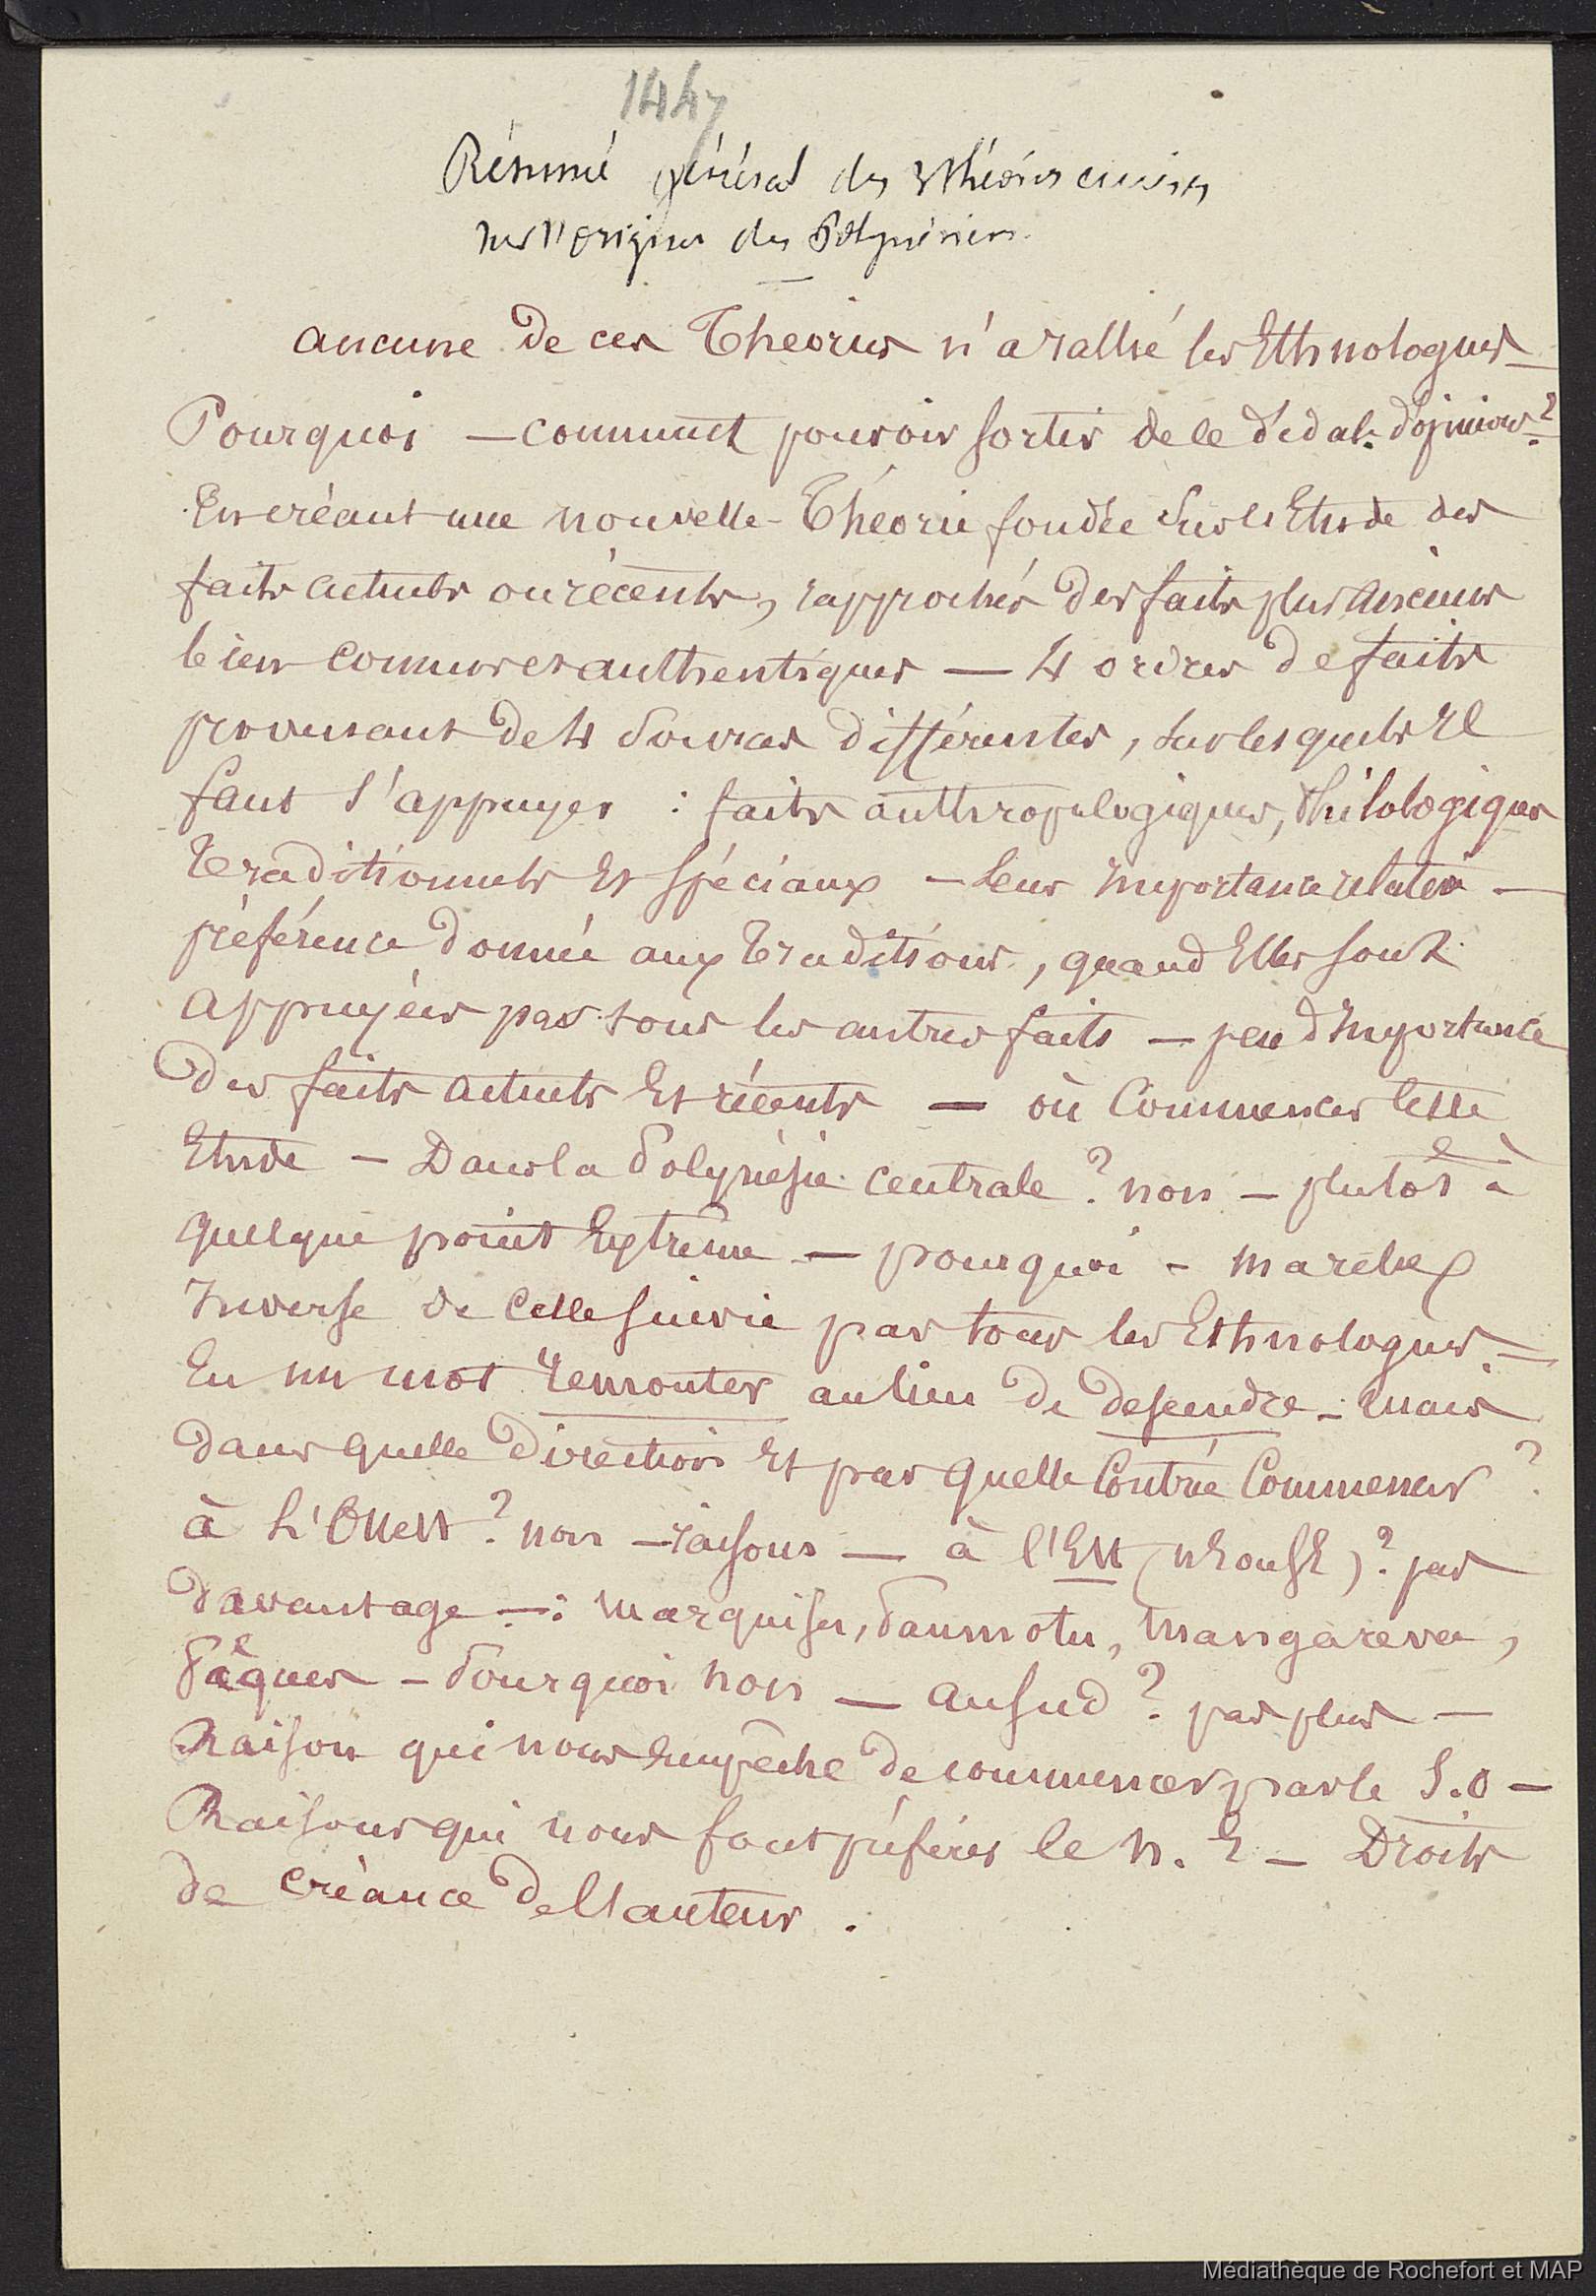 1447
Résumé général des théories émises
sur l'origine des Polynésiens.
aucune de ces Théories n'a rallié les Ethnologues —
Pourquoi — comment pouvoir sortir de ce dédale d'opinions ?
En créant une nouvelle Théorie fondée sur l'Etude des
faits actuels ou récents, rapprochés des faits plus anciens
bien connus et authentiques — 4 ordres de faits
provenant de 4 sources différentes, sur lesquels Il
faut s'appuyer : faits anthropologiques, philologiques
Traditionnels Et spéciaux — leur Importance relative —
préférence donnée aux Traditions, quand Elles sont
appuyées par tous les autres faits — peu d'Importance
des faits actuels Et récents — où Commencer cette
Etude — Dans la Polynésie centrale ? non — plutôt à
quelque point Extrême — pourquoi — marche
Inverse de celle suivie par tous les Ethnologues. —
En un mot remonter au lieu de descendre — mais
dans quelle Direction Et par quelle Contrée Commencer ?
à L'Ouest ? non — raisons — à l'Est (N E ou S E) ? pas
davantage — : Marquises, Paumotu, Mangareva,
Pâques — Pourquoi non — au sud ? pas plus —
Raison qui nous empêche de commencer par le S.O —
Raisons qui nous font préférer le N. E — Droits
de créance de l'auteur .
Médiathèque de Rochefort et MAP